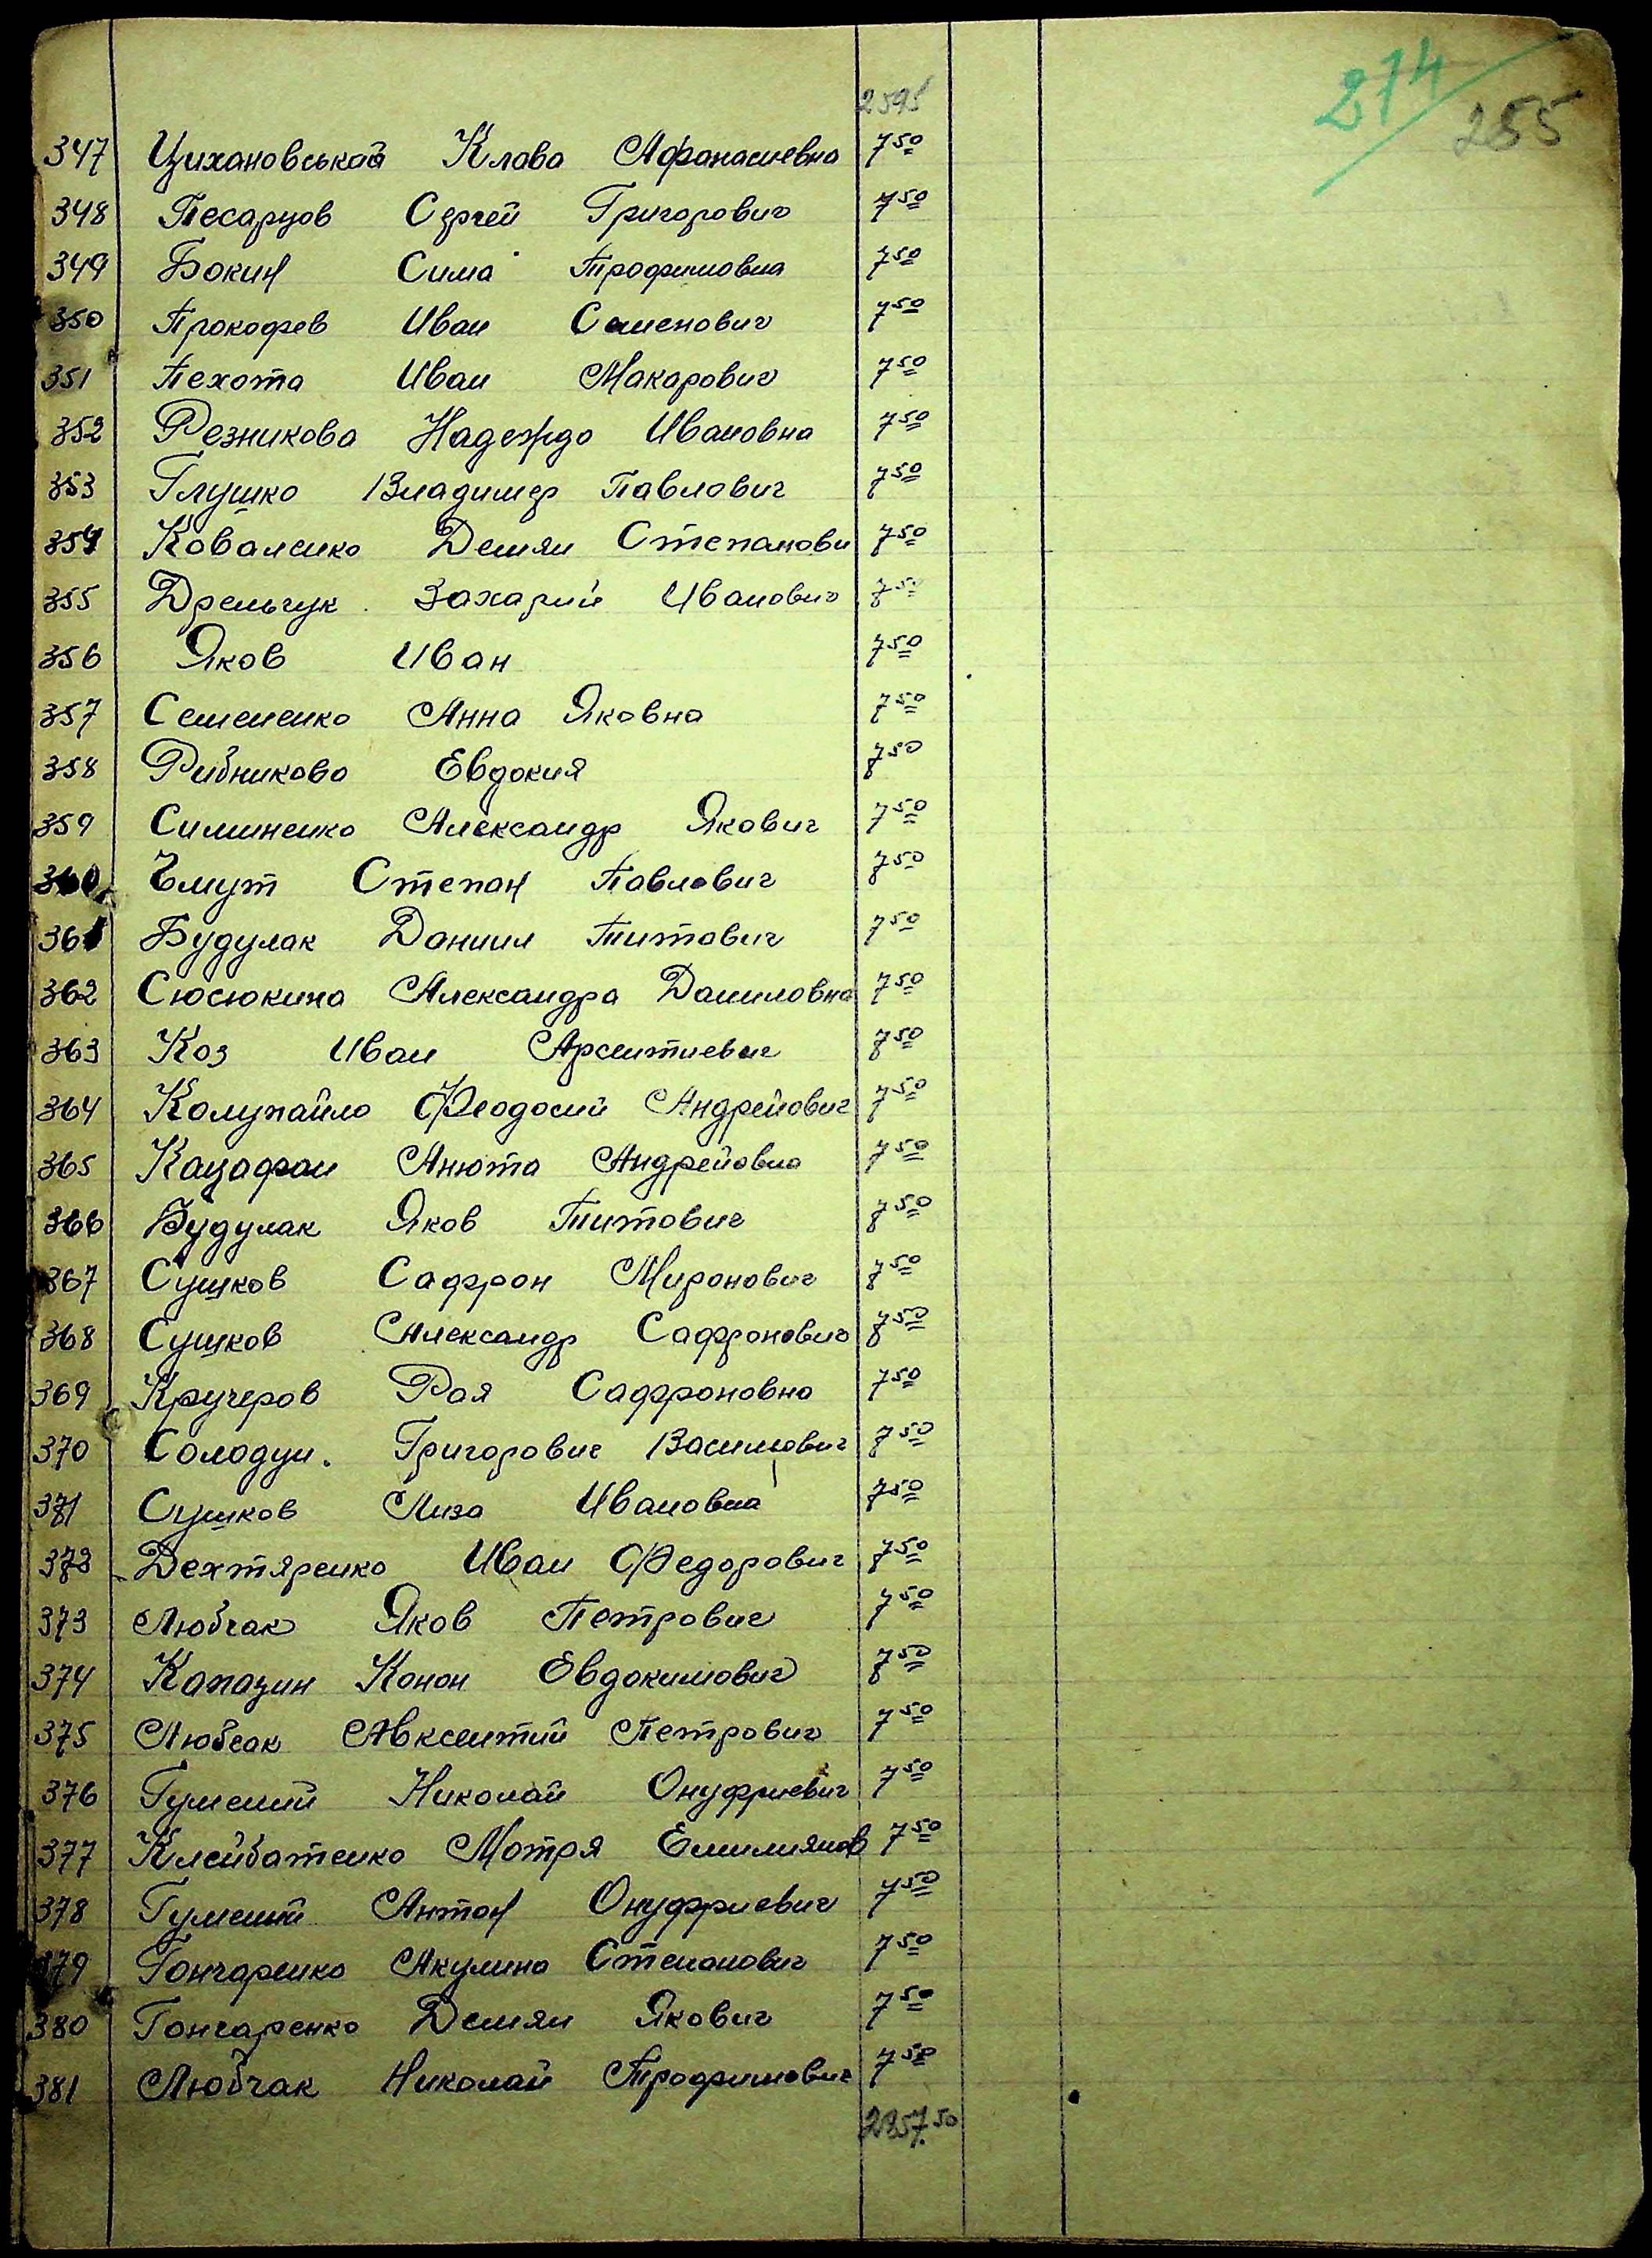 274
255
2595
347 Цихановськая Клава Афанасиевна 7 50
348 Песарцов Сергей Григорович 7 50
349 Бокий Сима Трофимовна 7 50
350 Прокофев Иван Семенович 7 50
351 Пехота Иван Макарович 7 50
352 Резникова Надеждо Ивановна 7 50
353 Глушко Владимер Павлович 7 50
354 Коваленко Демян Степанови 7 50
355 Дрельчук Захарий Иванович 7 50
356 Яков Иван 7 50
357 Семененко Анна Яковна 7 50
358 Рибникова Евдокия 7 50
359 Симиненко Александр Якович 7 50
360 Степан Павлович 7 50
361 Будулак Даниил Титович 7 50
362 Сюсюкина Александра Даниловна 7 50
363 Коз Иван Арсентиевич 7 50
364 Колупайло Феодосий Андрейович 7 50
365 Кацафан Анюта Андрейовна 7 50
366 Будулак Яков Титович 7 50
367 Сушков Сафрон Миронович 7 50
368 Сушков Александр Сафронович 7 50
369 Кручеров Рая Сафроновна 7 50
370 Солодун. Григорович Васильович 7 50
371 Сушков Лиза Ивановна 7 50
372 Дехтяренко Иван Федорович 7 50
373 Любчак Яков Петрович 7 50
374 Капацин Конон Евдокимович 7 50
375 Любчак Авксентий Петрович 7 50
376 Гумений Николай Онуфриевич 7 50
377 Клейбатенко Мотря Емилиянов 7 50
378 Гумений Антон Онуфриевич 7 50
379 Гончаренко Акулина Степанович 7 50
380 Гончаренко Демян Якович 7 50
381 Любчак Николай Трофимович 7 50
2857.50